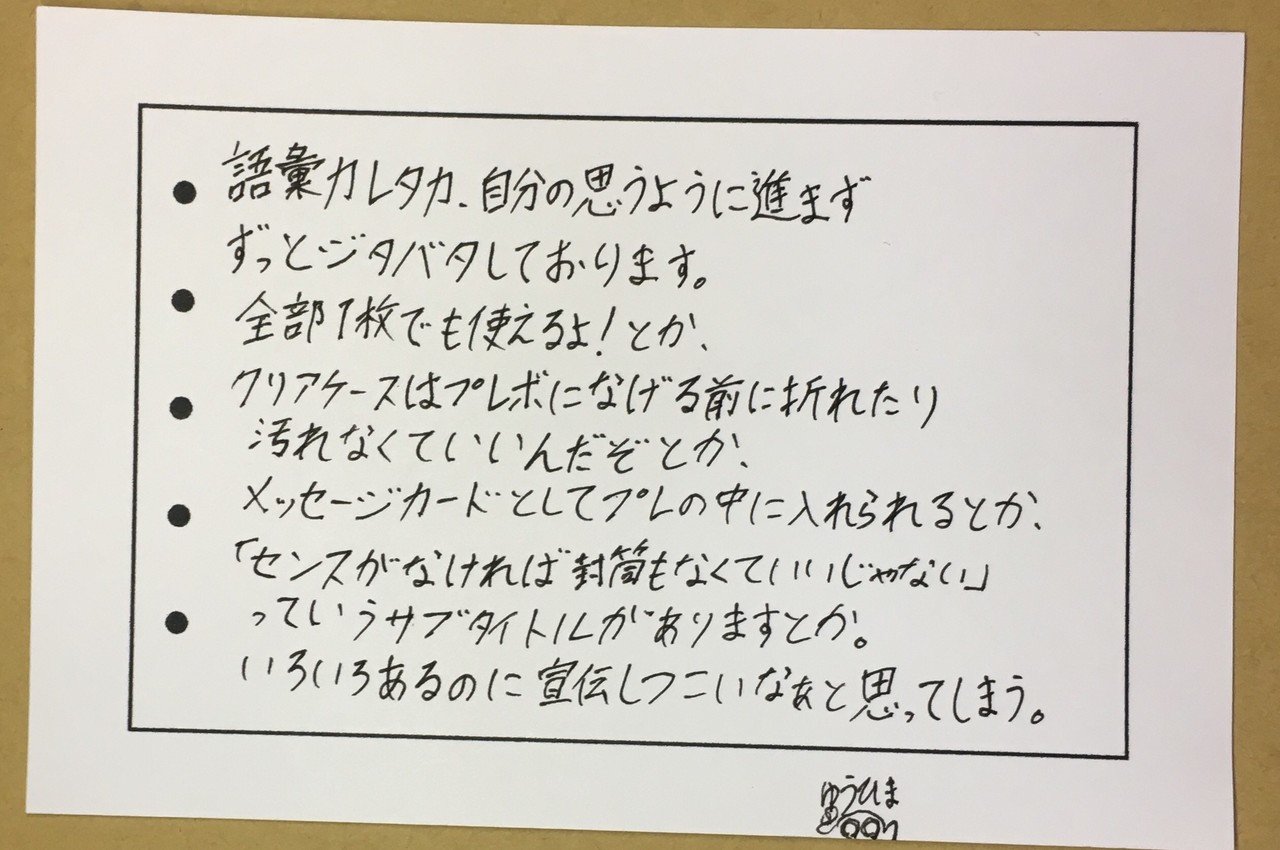 語彙力レタカ、自分の思うように進まず
ずっとジタバタしております。
全部1枚でも使えるよ!とか、
クリアケースはプレボになげる前に折れたり
汚れなくていいんだぞとか、
メッセージカードとしてプレの中に入れられるとか、
「センスがなければ封筒もなくていいじゃない」
っていうサブタイトルがありますとか。
いろいろあるのに宣伝しつこいなぁと思ってしまう。
ゆうひま